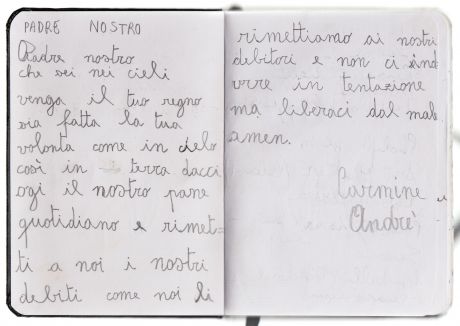 PADRE NOSTRO
Padre nostro
che sei nei cieli
venga il tuo regno
sia fatta la tua
volonta come in cielo
così in terra dacci
ogi il nostro pane
quotidiano e rimet=
ti a noi i nostri
debiti come noi li
rimettiamo ai nostri
debitori e non ci ind
urre in tentazione
ma liberaci dal male
amen.
Carmine e
Andrè